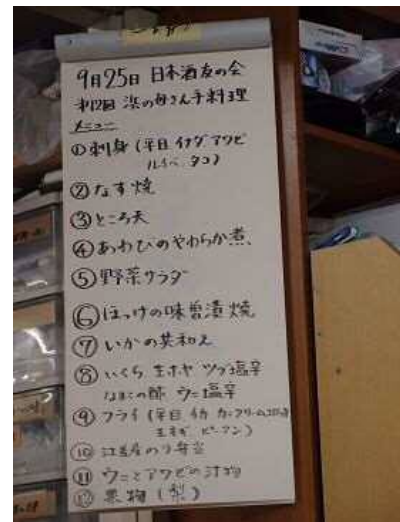 9月25日 日本酒友の会
第12回 浜の母さん手料理
メニュー
①刺身(平目 イナダ アワビ
ルイベ タコ)
②なす焼
③ところ天
④あわびのやわらか煮、
⑤野菜サラダ
⑥ほっけの味噌漬焼
⑦いかの共和え
⑧いくら 生ホヤ ツブ塩辛
なまこの酢 ウニ塩辛
⑨フライ(平目 イカ カニクリームコロッケ
玉ネギ ピーマン)
⑩ 弁当
⑪ウニとアワビの汁物
⑫果物(梨)